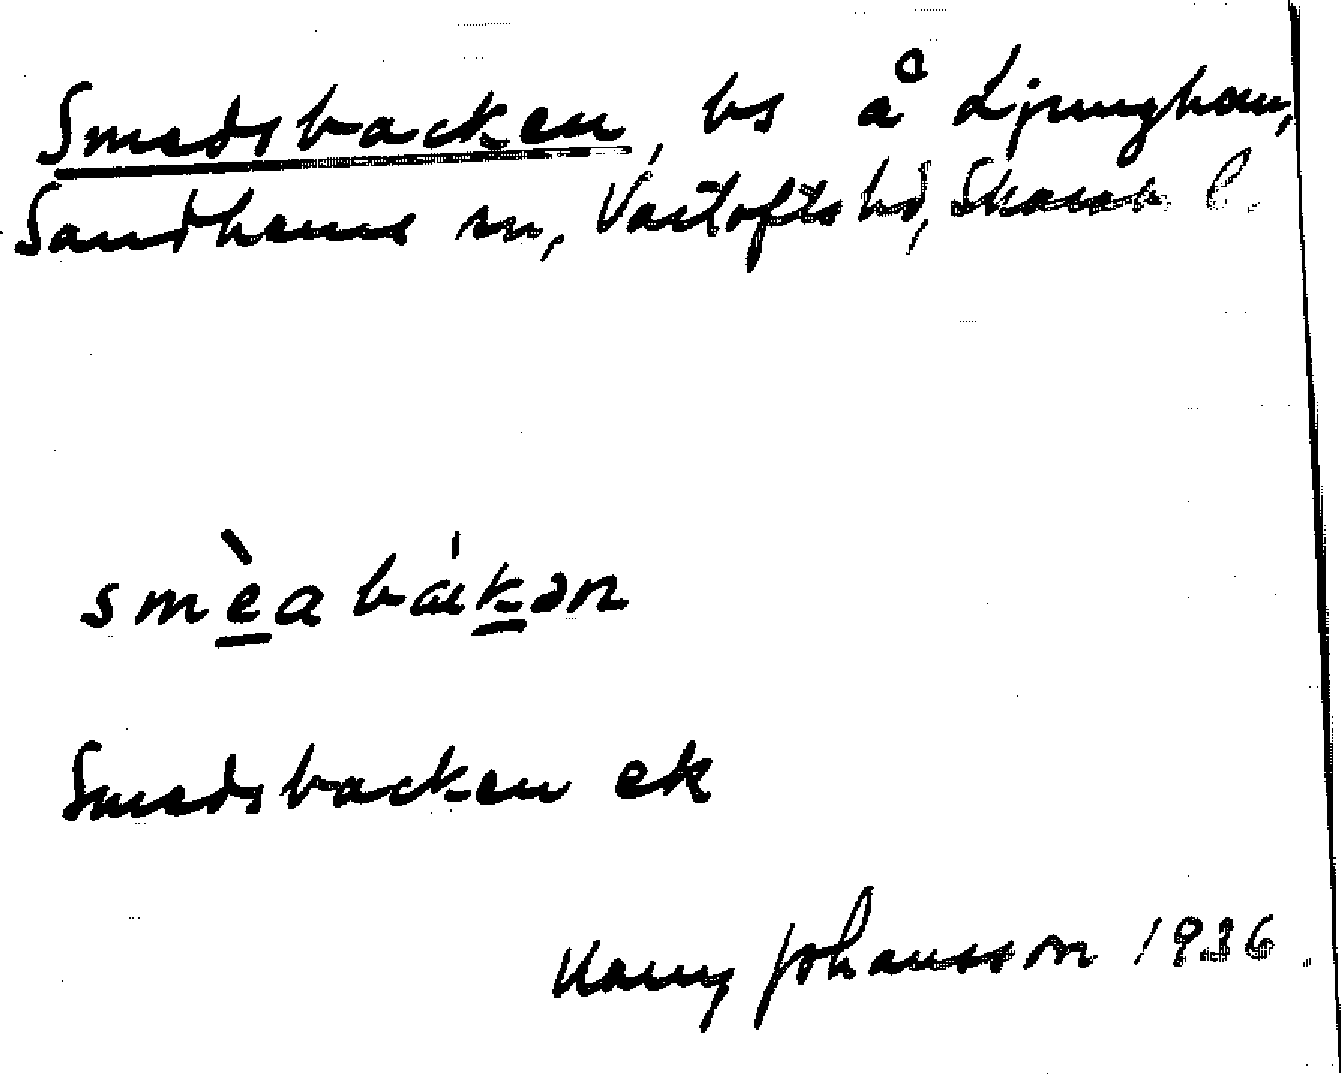 Smedsbacken, bs å Ljunghem,
Sandhems sn, Vartofts hd, Skarab. l.
smèabákən
Smedsbacken ek
Harry Johansson 1936